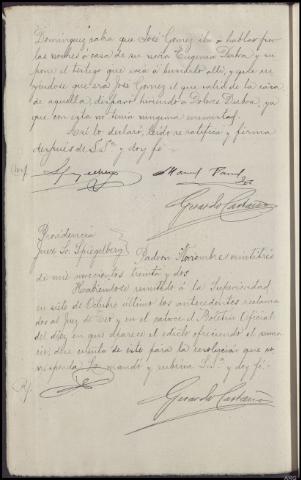 Dominguez sabia que José Gomez iba a hablar por
las noches á casa de su novia Eugenia Dubra y su
pone el testigo que iria a bundarle alli, y que cre
yendose que era José Gomez el que salia de la casa
de aquella, disparó hiriendo a Dolores Dubra, ya
que con esta no tenia ninguna enemistad.
Asi lo declaró, leido se ratifica y firma
despues de S.Sª y doy fé.
Manuel
Gerardo Castaño
Providencia
Juez Sr. Spiegelberg
Padron Noviembre veintitres
de mil novecientos treinta y dos
Habiendose remitido á la Superioridad
en siete de Octubre ultimo los antecedentes reclama
dos al Juez de y en el catorce el Boletin Oficial
del dia en que aparece el edicto ofreciendo el suma
rio; dese cuenta de este para la resolucion que co
rresponda. Lo mandó y rubrica S.Sª y doy fé.
Gerardo Castaño